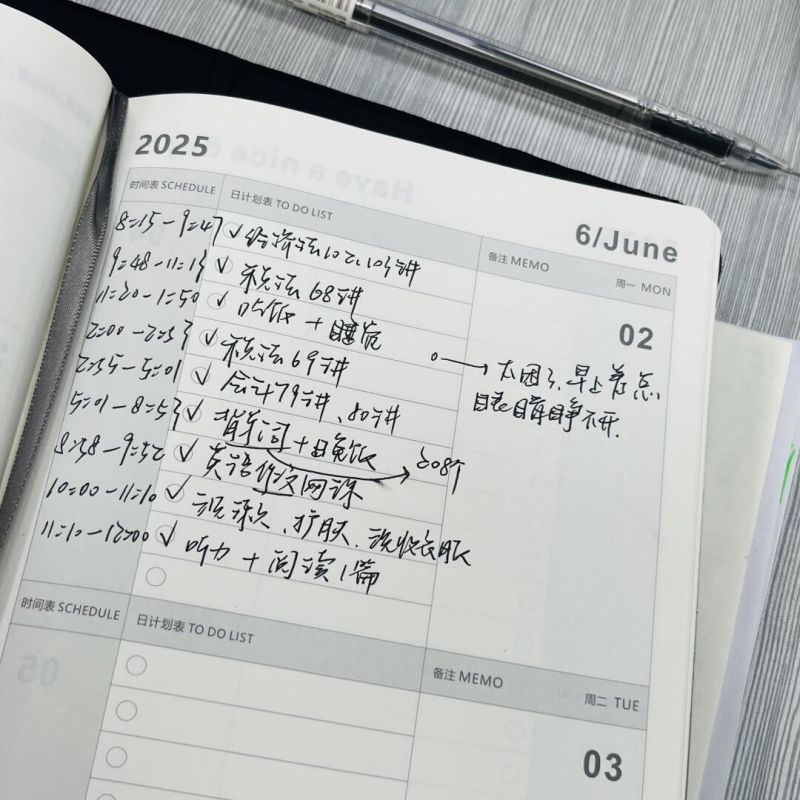 2025
6/June
时间表 SCHEDULE
日计划表 TO DO LIST
备注 MEMO
周一 MON
02
8:15-9:47
经济法102、103讲
9:48-11:13
税法68讲
11:20-1:50
吃饭+睡觉
2:00-2:53
税法69讲
2:55-5:01
会计79讲、80讲
5:01-8:53
背单词+晚饭
308个
8:58-9:52
英语作文网课
10:00-11:10
洗漱、护肤、洗收衣服
11:10-12:00
听力+阅读1篇
太困了,早上差点
眼睛睁不开.
时间表 SCHEDULE
日计划表 TO DO LIST
备注 MEMO
周二 TUE
03